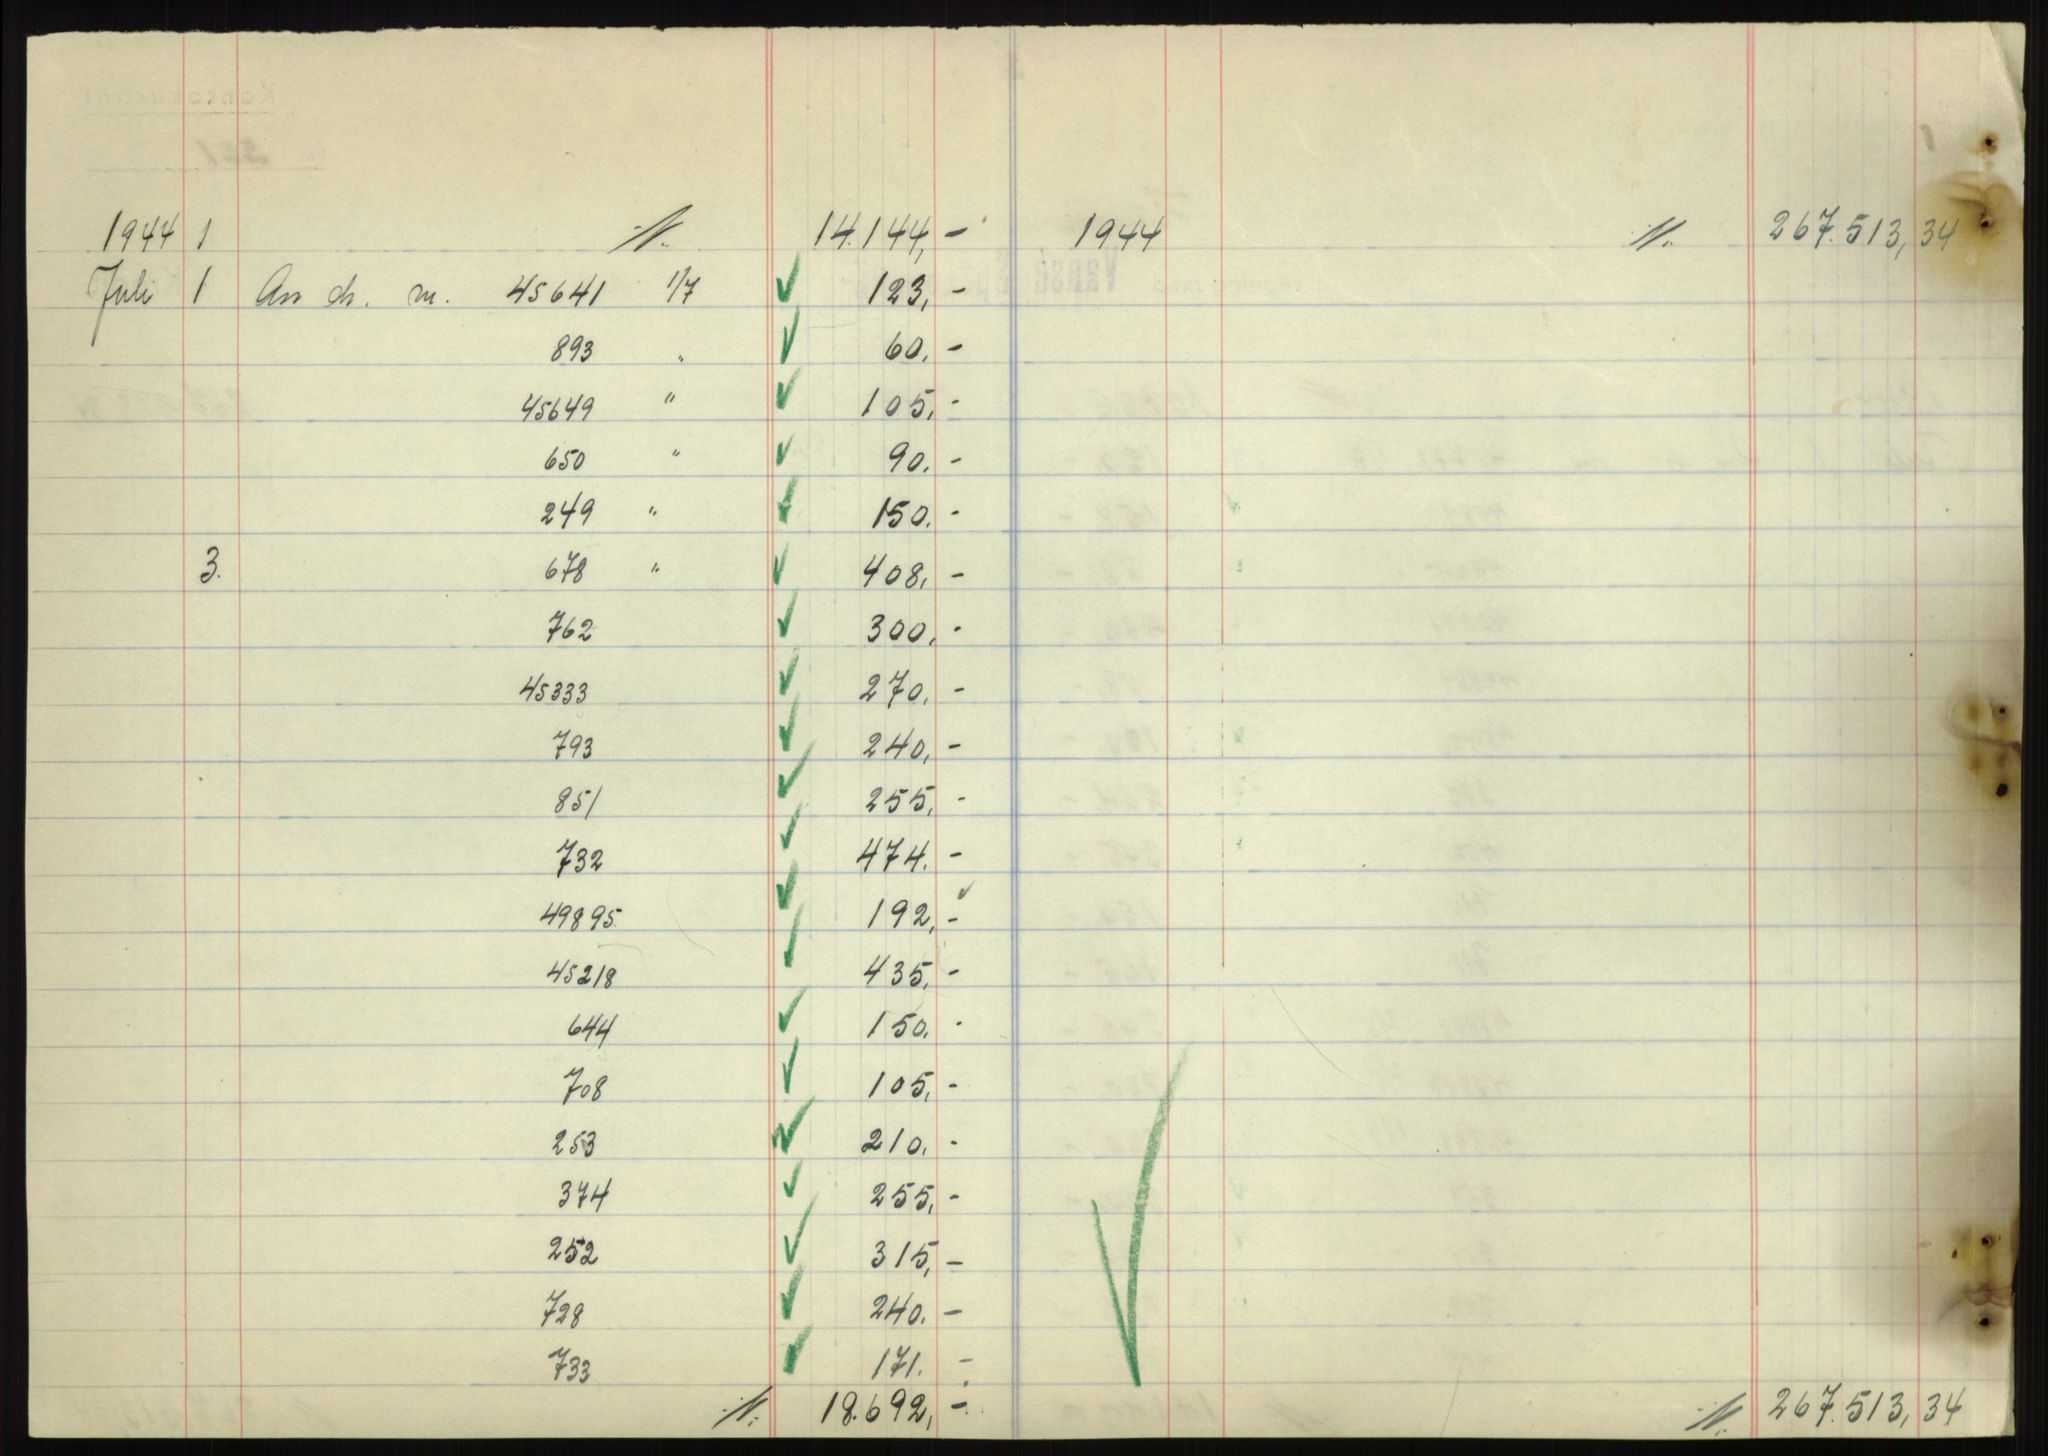 1944 1 ·/· 14.144,- 1944 ·/· 267.513,34
Juli 1 An ch. nr. 45641 1/7 123,-
893 " 60.-
45649 " 105,-
650 " 90.-
249 " 150.-
3. 678 " 408,-
762 300,-
45333 270,-
793 240,-
851 255,-
732 474.-
49895 192,-
45218 435,-
644 150.-
708 105,-
253 210.-
374 255,-
252 315,-
728 240.-
733 171.-
·/· 18.692,- ·/· 267.513,34